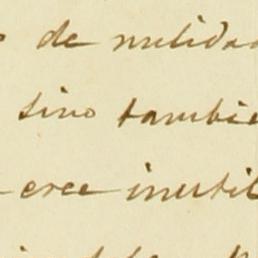 de nulidad
sino tambie
cree inutil